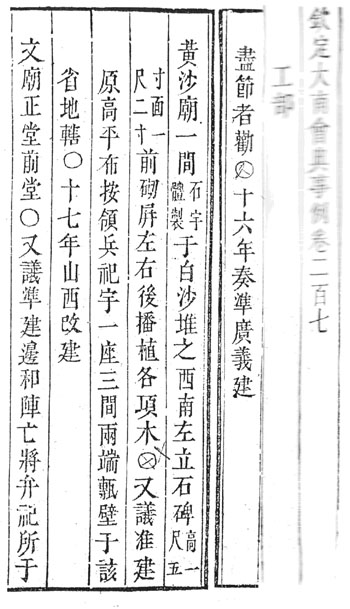 欽定大南會典事例卷二百七
工部
盡節者勸⊗十六年奏準廣義建
黃沙廟一間石字體製于白沙堆之西南左立石碑高一尺五
寸面一尺二寸前砌屏左右後播植各項木⊗又議准建
原高平布按領兵祀宇一座三間兩端甎壁于該
省地轄○十七年山西改建
文廟正堂前堂○又議準建邊和陣亡將弁祀所于